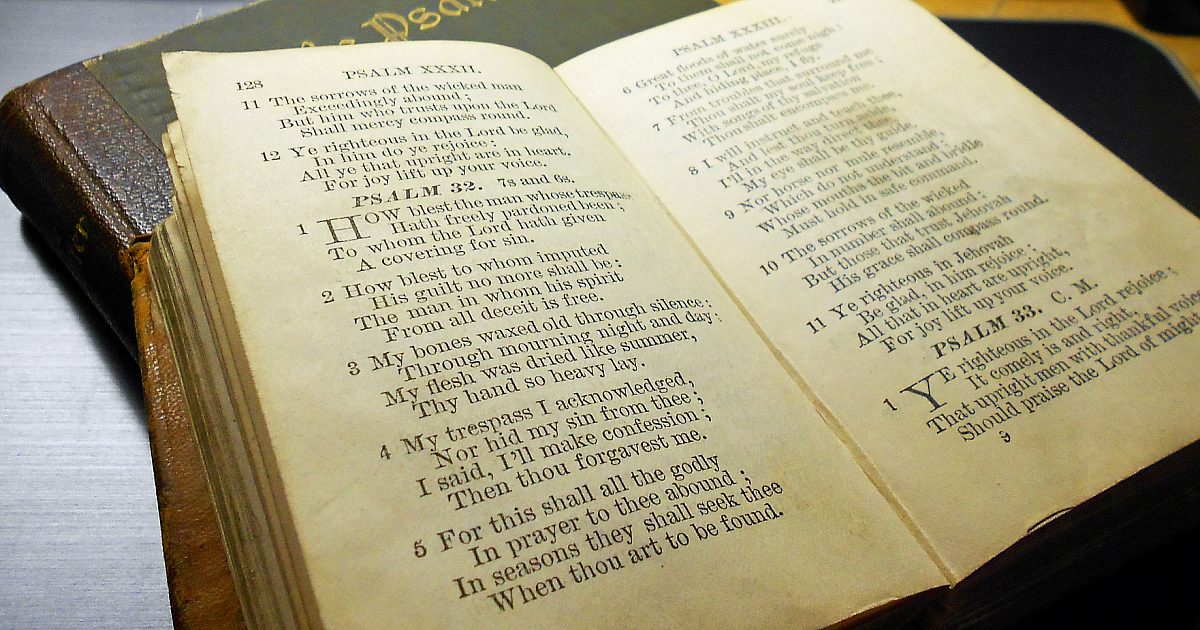 Psal
CT
128
PSALM XXXII.
11 The sorrows of the wicked man
Exceedingly abound;
But him who trusts upon the Lord
Shall mercy compass round.
12 Ye righteous in the Lord be glad,
In him do ye rejoice:
All ye that upright are in heart.
For joy lift up your voice.
PSALM 32. 7s and 6s.
1 HOW blest the man whose trespass
Hath freely pardoned been;
To whom the Lord hath given
A covering for sin.
2 How blest to whom imputed
His guilt no more shall be:
The man in whom his spirit
From all deceit is free.
3 My bones waxed old through silence:
Through mourning night and day:
My flesh was dried like summer,
Thy hand so heavy lay.
4 My trespass I acknowledged,
Nor hid my sin from thee:
I said, I'll make confession;
Then thou forgavest me.
5 For this shall all the godly
In prayer to thee abound;
In seasons they shall seek thee
When thou art to be found.
PSALM XXXIII.
6 Great floods of water surely
To them shall not come nigh:
To thee, O Lord, my refuge
And hiding place, I fly.
7 From troubles that surround me
Thou shalt my soul keep free;
With songs of thy salvation
Thou shalt encompass me.
8 I will instruct and teach thee,
And lest thou turn aside,
I'll in the way direct thee,
My eye shall be thy guide.
9 Nor horse nor mule resemble,
Which do not understand;
Whose mouths the bit and bridle
Must hold in safe command.
10 The sorrows of the wicked
In number shall abound:
But those that trust Jehovah
His grace shall compass round.
11 Ye righteous in Jehovah
Be glad, in him rejoice;
All that in heart are upright,
For joy lift up your voice.
PSALM 33. C. M.
1 YE righteous in the Lord rejoice;
It comely is and right,
That upright men with thankful voice
Should praise the Lord of might
9